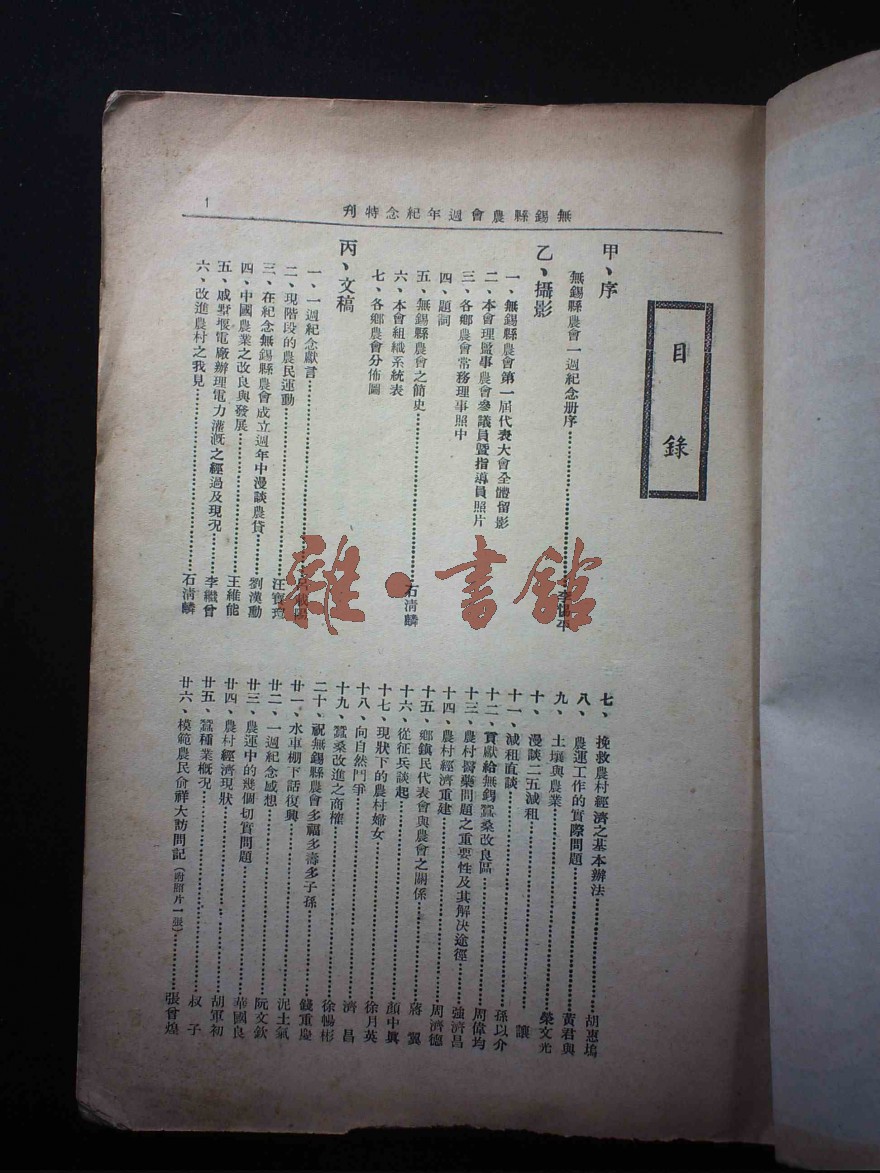 無錫縣農會週年紀念特刊
1
目錄
甲、序
無錫縣農會一週紀念册序
乙、攝影
一、無錫縣農會第一屆代表大會全體留影
二、本會理監事農會參議員暨指導員照片
三、各鄉農會常務理事照中
四、題詞
五、無錫縣農會之簡史……石清麟
六、本會組織系統表
七、各鄉農會分佈圖
丙、文稿
一、一週紀念獻言
二、現階段的農民運動……汪寶瑄
三、在紀念無錫縣農會成立週年中漫談農貸……劉漢勳
四、中國農業之改良與發展……王維能
五、戚墅堰電廠辦理電力灌溉之經過及現况……李繼曾
六、改進農村之我見……石清麟
七、挽救農村經濟之基本辦法……胡惠塢
八、農運工作的實際問題……黃君與
九、土壤與農業……榮文光
十、漫談二五減租……讓
十一、減租直談……孫以介
十二、貢獻給無錫蠶桑改良區……周偉均
十三、農村醫藥問題之重要性及其解决途徑……強濟昌
十四、農村經濟重建……周濟德
十五、鄉鎮民代表會與農會之關係……蔣翼
十六、從征兵談起……顏中興
十七、現狀下的農村婦女……徐月英
十八、向自然鬥爭……濟昌
十九、蠶桑改進之商榷……徐暢彬
二十、祝無錫縣農會多福多壽多子孫……錢重慶
廿一、水車棚下話復興……泥土氣
廿二、一週紀念感想……阮文欽
廿三、農運中的幾個切實問題……華國良
廿四、農村經濟現狀……胡軍初
廿五、蠶種業概况……叔子
廿六、模範農民俞祥大訪問記（附照片一張）……張曾煌
雜·書館